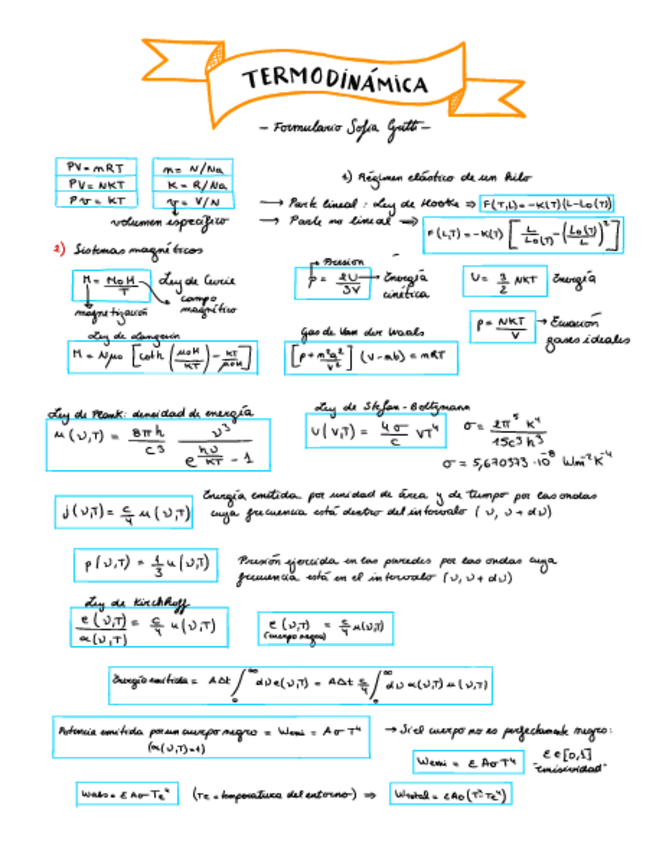 TERMODINÁMICA
- Formulario Sofia Gritti -
PV = nRT
n = N/Na
PV = NKT
K = R/Na
Pv = KT
v = V/N
volumen específico
1) Régimen elástico de un hilo
→ Parte lineal: Ley de Hooke ⇒ F(T,L) = -K(T)(L-L₀(T))
→ Parte no lineal ⇒ F(L,T) = -K(T) [L/L₀(T) - (L₀(T)/L)²]
2) Sistemas magnéticos
M = MoH/T
Ley de Curie
magnetización
campo magnético
Presion
P = 2U/3V → Energía cinética
U = 3/2 NKT Energía
P = NKT/V → Ecuación gases ideales
Ley de Langevin
M = Nμo [coth (μoH/KT) - KT/μoH]
Gas de Van der Waals
[p + n²a²/V²] (V-nb) = nRT
Ley de Plank: densidad de energía
u(υ,T) = 8πh/c³ υ³/(e^(hυ/KT) - 1)
Ley de Stefan-Boltzmann
U(V,T) = 4σ/c VT⁴
σ = 2π⁵ K⁴/15c³h³
σ = 5,670373·10⁻⁸ Wm⁻²K⁻⁴
j(υ,T) = c/4 u(υ,T)
Energía emitida por unidad de área y de tiempo por las ondas
cuya frecuencia está dentro del intervalo (υ, υ + dυ)
p(υ,T) = 1/3 u(υ,T)
Presión ejercida en las paredes por las ondas cuya
frecuencia está en el intervalo (υ, υ + dυ)
Ley de Kirchhoff
e(υ,T)/α(υ,T) = c/4 u(υ,T)
e(υ,T) = c/4 u(υ,T)
(cuerpo negro)
Energía emitida = AΔt ∫₀^∞ dυ e(υ,T) = AΔt c/4 ∫₀^∞ dυ α(υ,T) u(υ,T)
Potencia emitida por un cuerpo negro = Wemi = AσT⁴
(α(υ,T)=1)
→ Si el cuerpo no es perfectamente negro:
Wemi = εAσT⁴
ε ∈ [0,1]
"emisividad"
Wabs = εAσTe⁴
(Te = temperatura del entorno) ⇒
Wtotal = εAσ(T⁴-Te⁴)